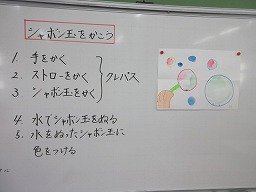 シャボン玉をかこう
1. 手をかく
2. ストローをかく
3. シャボン玉をかく
クレパス
4. 水でシャボン玉をぬる
5. 水をぬったシャボン玉に
色をつける